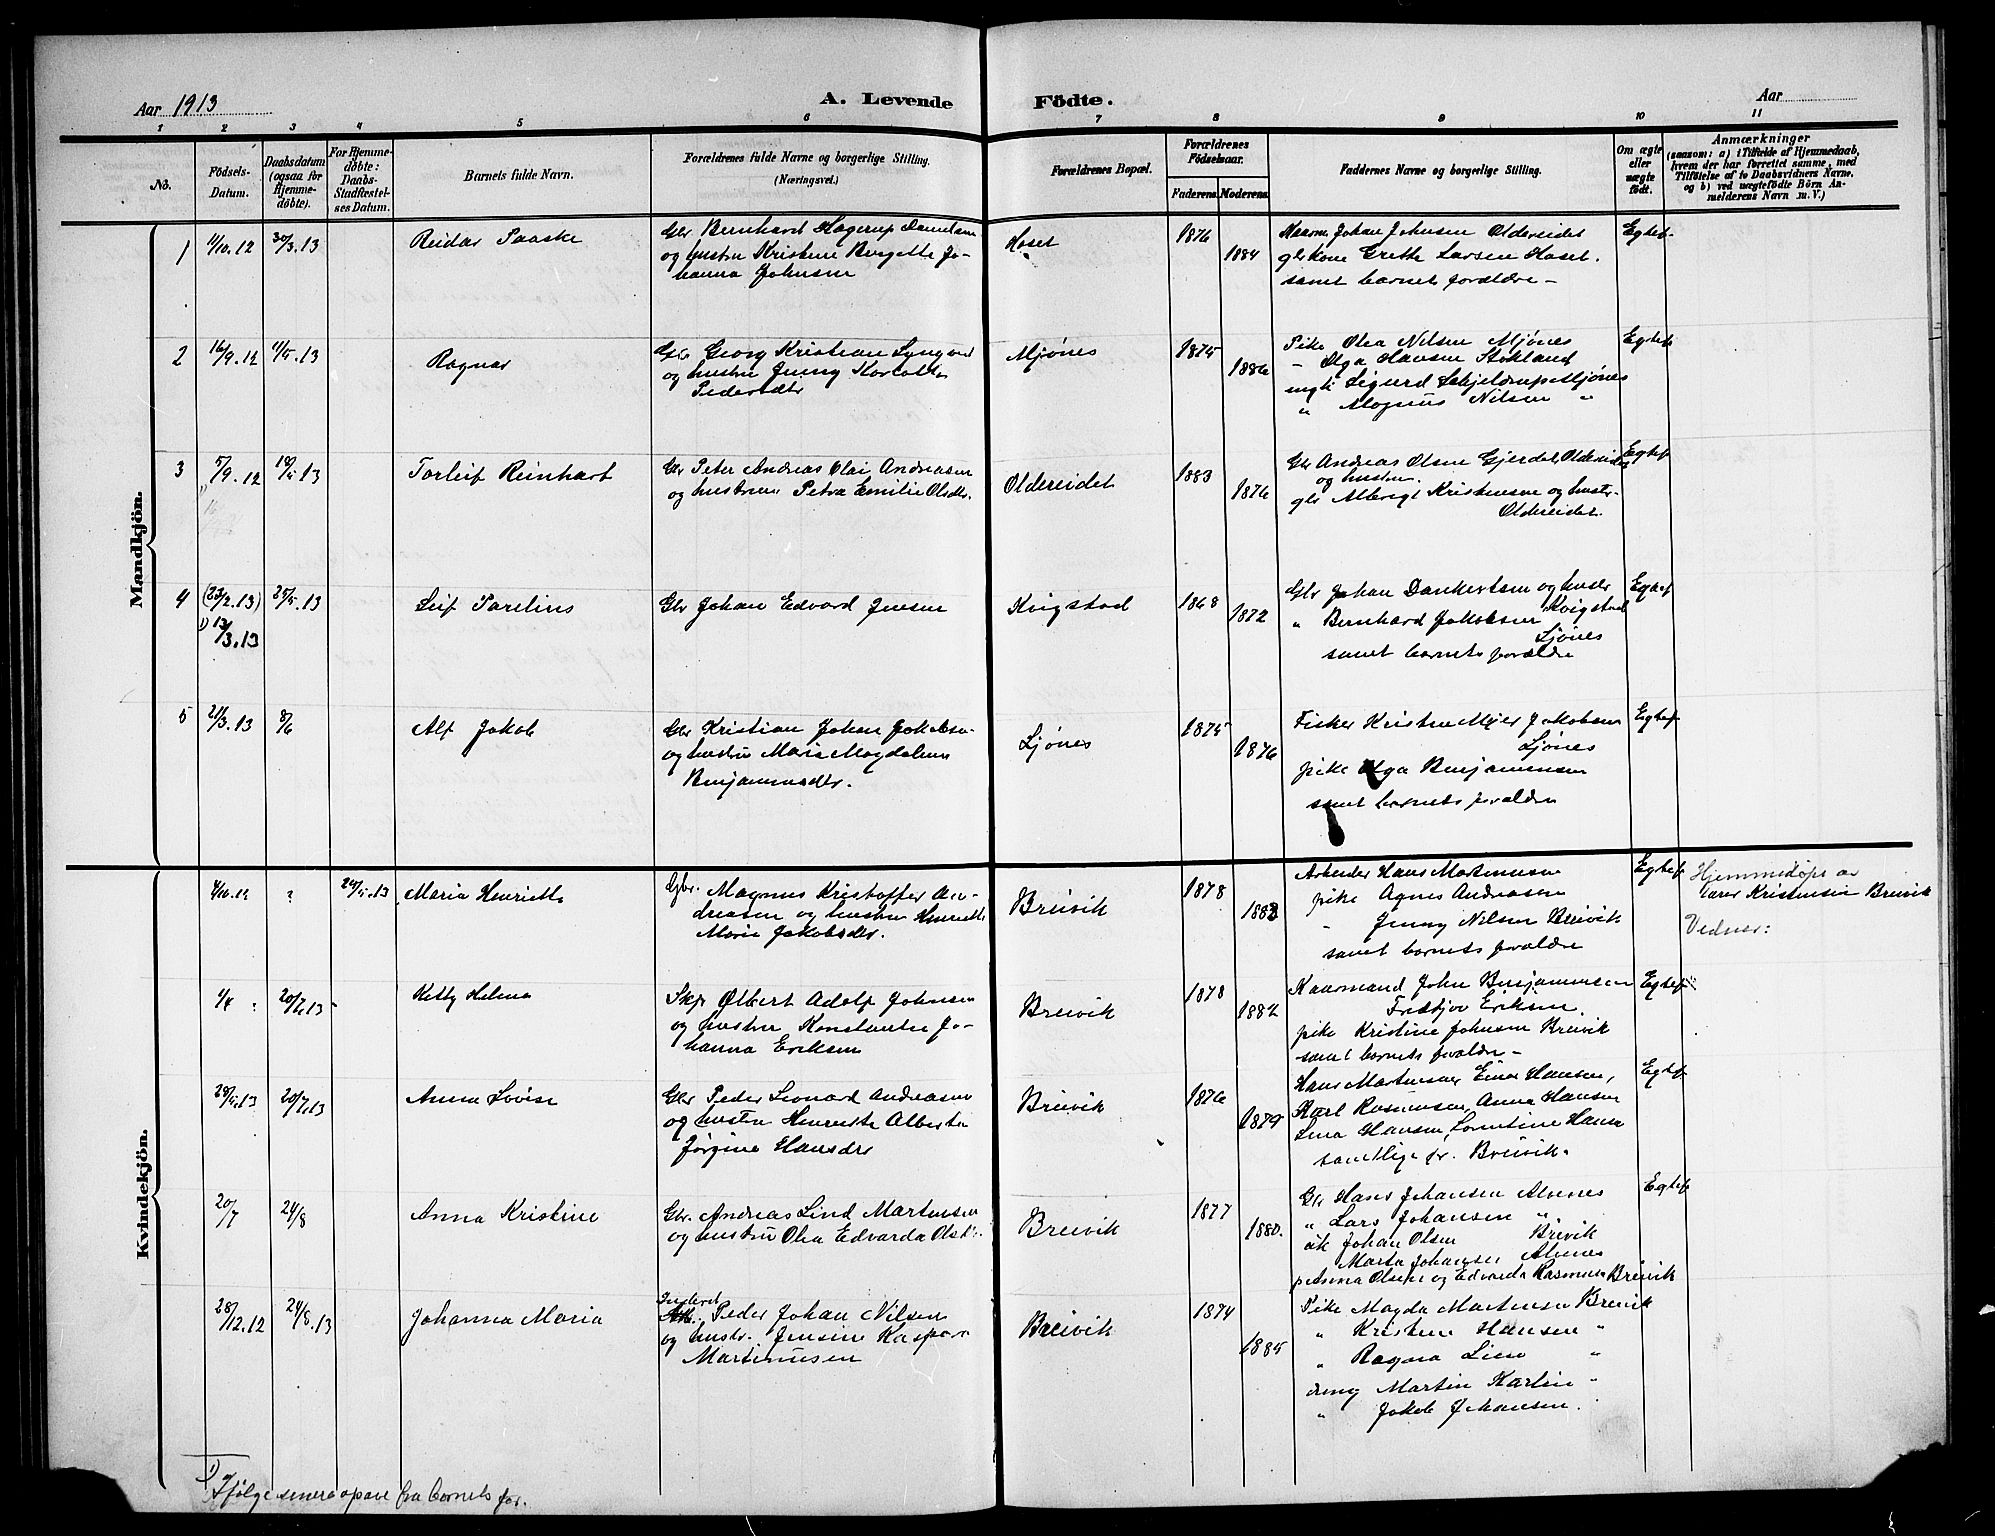 Aar 1913
A. Levende
Födte.
Aar
1 2 3 4 5 6 7 8 9 10 11
No.
Födsels-
Datum.
Daabsdatum
(ogsaa for
Hjemme-
döbte).
For Hjemme-
döbte:
Daabs-
Stadfæstel-
ses Datum.
Barnets fulde Navn.
Forældrenes fulde Navne og borgerlige Stilling.
(Næringsvei.)
Forældrenes Bopæl.
Forældrenes
Födselsaar.
Faderens. Moderens.
Faddernes Navne og borgerlige Stilling.
Om ægte
eller
uægte
født.
Anmærkninger
(saasom: a) i Tilfælde af Hjemmedaab,
hvem der har forrettet samme, med
Tilföielse af to Daabsvidners Navne,
og b) ved uægtefödte Börn An-
melderens Navn m. V.)
Mandkjön.
1
/10.12
30/3.13
Reidar Paaske
Gbr Bernhard Hagerup
og hustru Kristine Bergette Jo-
hanna Johnsen
Hoset
1876
1884
Johan Johnsen Oldereidet
gbkone Grethe Larsen Hoset.
samt barnets forældre -
Egtef
2
16/9.12
11/5.13
Ragnar
Gbr Georg Kristian
og hustru Jenny
Pedersdtr
Mjønes
1875
1886
Pike Olea Nilsen Mjønes
- Olga Hansen Stokland
ungk Sigurd Schjelderup Mjønes
" Magnus Nilsen "
Egtef
3
5/9.12
18/5.13
Torleif Reinhart
Gbr Peter Andreas Olai Andreasen
og hustru Petra Emilie Olsdtr.
Oldereidet
1883
1876
Gbr Andreas Olsen Gjerdet, Oldereidet
og hustru.
gbr Albrigt Kristensen og hustr-
Oldereidet.
Egtef
4
(23/2.13)
1) 13/3.13
25/5.13
Leif Parelius
Gbr Johan Edvard Jensen
Kvigstad
1868
1872
Gbr Johan Dankertsen og hustr
Kvigstad
" Bernhard Jakobsen
Ljønes
samt barnets forældre
Egtef
5
21/3.13
8/6
Alf Jakob
Gbr Kristian Johan Jakobsen
og hustru Marie Magdalena
Benjaminsdtr.
Ljønes
1875
1876
Fisker Kristen Mejer Jakobsen
Ljønes
pike Olga Benjaminsen
samt barnets forældre
Egtef
Kvindekjön.
/10.12
?
/5.13
Maria Henriette
Gbr. Magnus Kristoffer An-
dreasen og hustru Henriette
Marie Jakobsdtr.
Breivik
1878
1882
Arbeider Hans Martinussen
pike Agnes Andreasen
- Jenny Nilsen Breivik
samt barnets forældre
Egtef
Hjemmedøpt av
Kristensen Breivik
Vidner:
1/4
20/7.13
Ketty Helena
Skp Olbert Adolf Johnsen
og hustru Konstantse Jo-
hanna Eriksen
Breivik
1878
1882
Kaarmand John Benjaminsen
Fridtjov Eriksen.
pike Kristine Johnsen Breivik
samt barnets forældre -
Egtef
/5.13
20/7.13
Anna Lovise
Gbr Peder Leonard Andreasen
og hustru Henriette Alberte
Jørgine Hansdtr
Breivik
1876
1879
Hans Martinussen Einar Hansen,
Karl Rasmussen, Anna Hansen
Lina Hansen, Lorentine Hansen
samtlige fr. Breivik.
Egtef
20/7
24/8
Anna Kristine
Gbr. Andreas Lind Martinsen
og hustru Olea Edvarda Olsdtr.
Breivik
1877
1880.
Gbr Hans Johansen Alvenes
" Lars Johansen "
Johan Olsen Breivik
Marta Johansen Alvenes
p Anna Olsen og Edvarda Rasmussen Breivik
Egtef
28/12.12
24/8.13
Johanna Maria
Inderst
Peder Johan Nilsen
og hustr. Jensine Kaspara
Martinusen
Breivik
1874
1885
Pike Magda Martinsen Breivik
" Kristine Hansen "
" Ragna Lind "
dreng Martin Karlsen "
" Jakob Johansen.
1) Ifølge senere opgave fra barnets far.